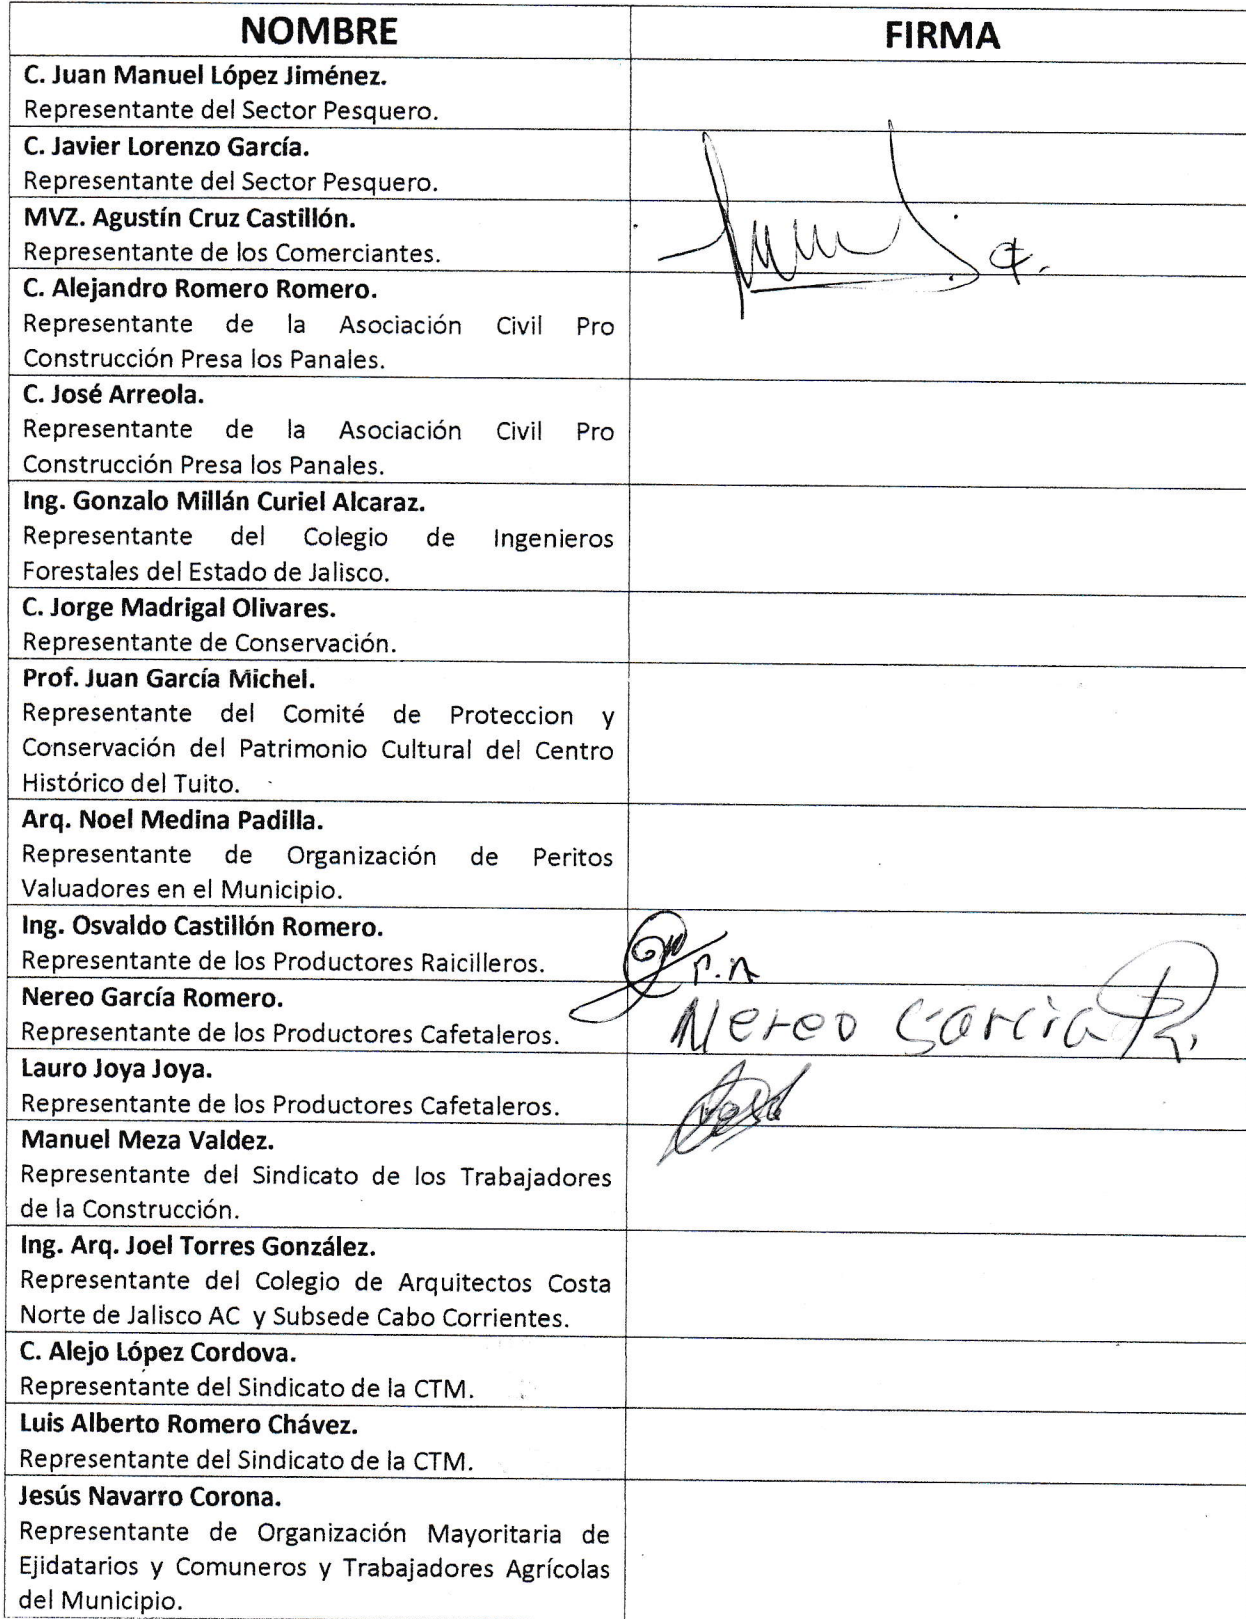 NOMBRE
FIRMA
C. Juan Manuel López Jiménez.
Representante del Sector Pesquero.
C. Javier Lorenzo García.
Representante del Sector Pesquero.
MVZ. Agustín Cruz Castillón.
Representante de los Comerciantes.
C. Alejandro Romero Romero.
Representante de la Asociación Civil Pro
Construcción Presa los Panales.
C. José Arreola.
Representante de la Asociación Civil Pro
Construcción Presa los Panales.
Ing. Gonzalo Millán Curiel Alcaraz.
Representante del Colegio de Ingenieros
Forestales del Estado de Jalisco.
C. Jorge Madrigal Olivares.
Representante de Conservación.
Prof. Juan García Michel.
Representante del Comité de Proteccion y
Conservación del Patrimonio Cultural del Centro
Histórico del Tuito.
Arq. Noel Medina Padilla.
Representante de Organización de Peritos
Valuadores en el Municipio.
Ing. Osvaldo Castillón Romero.
Representante de los Productores Raicilleros.
Nereo García Romero.
Nereo García R.
Representante de los Productores Cafetaleros.
Lauro Joya Joya.
Representante de los Productores Cafetaleros.
Manuel Meza Valdez.
Representante del Sindicato de los Trabajadores
de la Construcción.
Ing. Arq. Joel Torres González.
Representante del Colegio de Arquitectos Costa
Norte de Jalisco AC y Subsede Cabo Corrientes.
C. Alejo López Cordova.
Representante del Sindicato de la CTM.
Luis Alberto Romero Chávez.
Representante del Sindicato de la CTM.
Jesús Navarro Corona.
Representante de Organización Mayoritaria de
Ejidatarios y Comuneros y Trabajadores Agrícolas
del Municipio.